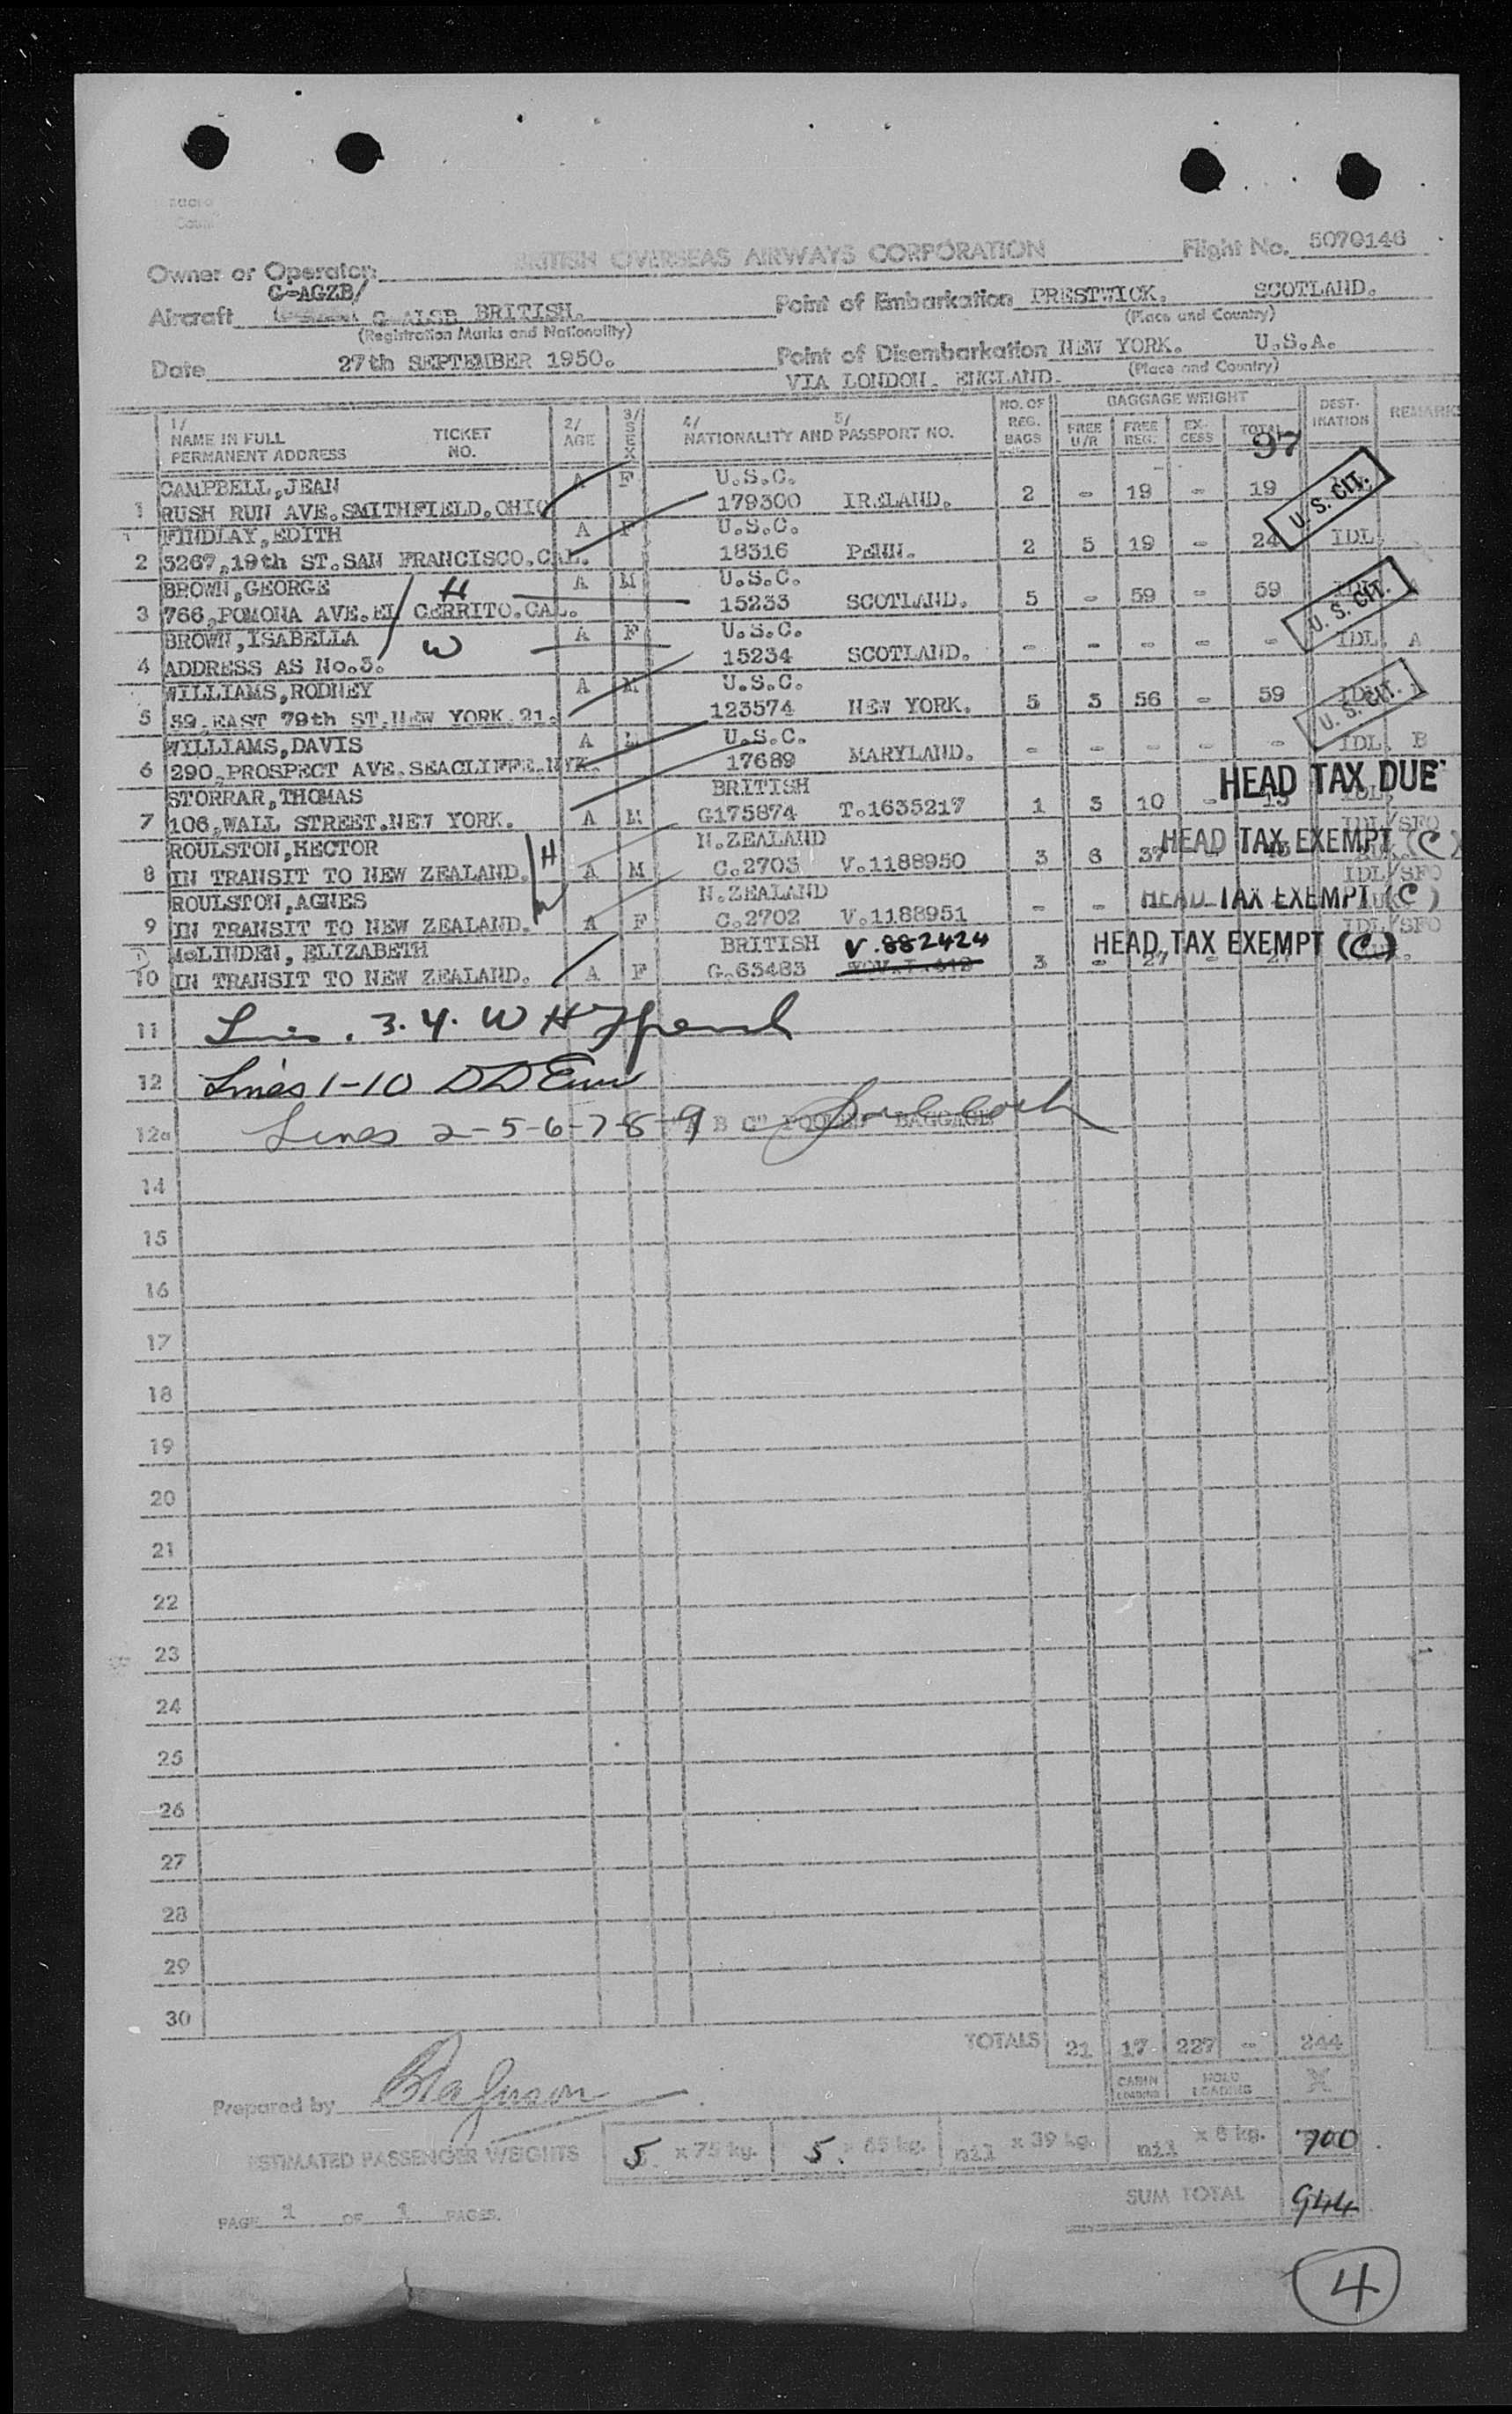 Owner or Operator BRITISH OVERSEAS AIRWAYS CORPORATION Flight No. 5070146
G-AGZB/
Aircraft G-ALSB BRITISH. Point of Embarkation PRESTWICK. SCOTLAND.
(Registration Marks and Nationality) (Place and Country)
Date 27th SEPTEMBER 1950. Point of Disembarkation NEW YORK. U.S.A.
VIA LONDON. ENGLAND. (Place and Country)
1/ NAME IN FULL PERMANENT ADDRESS TICKET NO. 2/ AGE 3/ SEX 4/ 5/ NATIONALITY AND PASSPORT NO. NO. OF REG. BAGS BAGGAGE WEIGHT FREE U/R FREE REG. EXCESS TOTAL DESTINATION REMARKS
97
CAMPBELL,JEAN A F U.S.C.
1 RUSH RUN AVE.SMITHFIELD.OHIO 179300 IRELAND. 2 - 19 - 19 U. S. CIT.
FINDLAY,EDITH A F U.S.C.
2 3267,19th ST.SAN FRANCISCO.CAL. 18316 PENN. 2 5 19 - 24 IDL
BROWN,GEORGE H A M U.S.C.
3 766,POMONA AVE.EL CERRITO.CAL. 15233 SCOTLAND. 5 - 59 - 59 U. S. CIT. A
BROWN,ISABELLA W A F U.S.C.
4 ADDRESS AS No.3. 15234 SCOTLAND. - - - - - IDL A
WILLIAMS,RODNEY A M U.S.C.
5 39,EAST 79th ST.NEW YORK.21. 123574 NEW YORK. 5 3 56 - 59 IDL U. S. CIT.
WILLIAMS,DAVIS A M U.S.C.
6 290,PROSPECT AVE.SEACLIFFE.NYK. 17689 MARYLAND. - - - - - IDL B
STORRAR,THOMAS BRITISH HEAD TAX DUE
7 106,WALL STREET.NEW YORK. A M G175874 T.1635217 1 3 10 - 13 IDL
ROULSTON,HECTOR H N.ZEALAND IDL/SFO HEAD TAX EXEMPT (C)
8 IN TRANSIT TO NEW ZEALAND. A M C.2703 V.1188950 3 6 37 -
ROULSTON,AGNES W N.ZEALAND IDL/SFO HEAD TAX EXEMPT (C)
9 IN TRANSIT TO NEW ZEALAND. A F C.2702 V.1188951 - -
McLINDEN, ELIZABETH BRITISH V.882424 IDL/SFO HEAD TAX EXEMPT (C)
10 IN TRANSIT TO NEW ZEALAND. A F G.63483 3 - 27 -
11 Lines. 3.4. W H
12 Lines 1-10 D D
12a Lines 2-5-6-7-8-9 B C" POOLED BAGGAGE
14
15
16
17
18
19
20
21
22
23
24
25
26
27
28
29
30
TOTALS 21 17 227 - 244
CABIN LOADING HOLD LOADING X
Prepared by
ESTIMATED PASSENGER WEIGHTS 5. x 75 kg. 5. x 65 kg. nil x 39 kg. nil x 8 kg. 700
SUM TOTAL 944
PAGE 1 OF 1 PAGES.
4